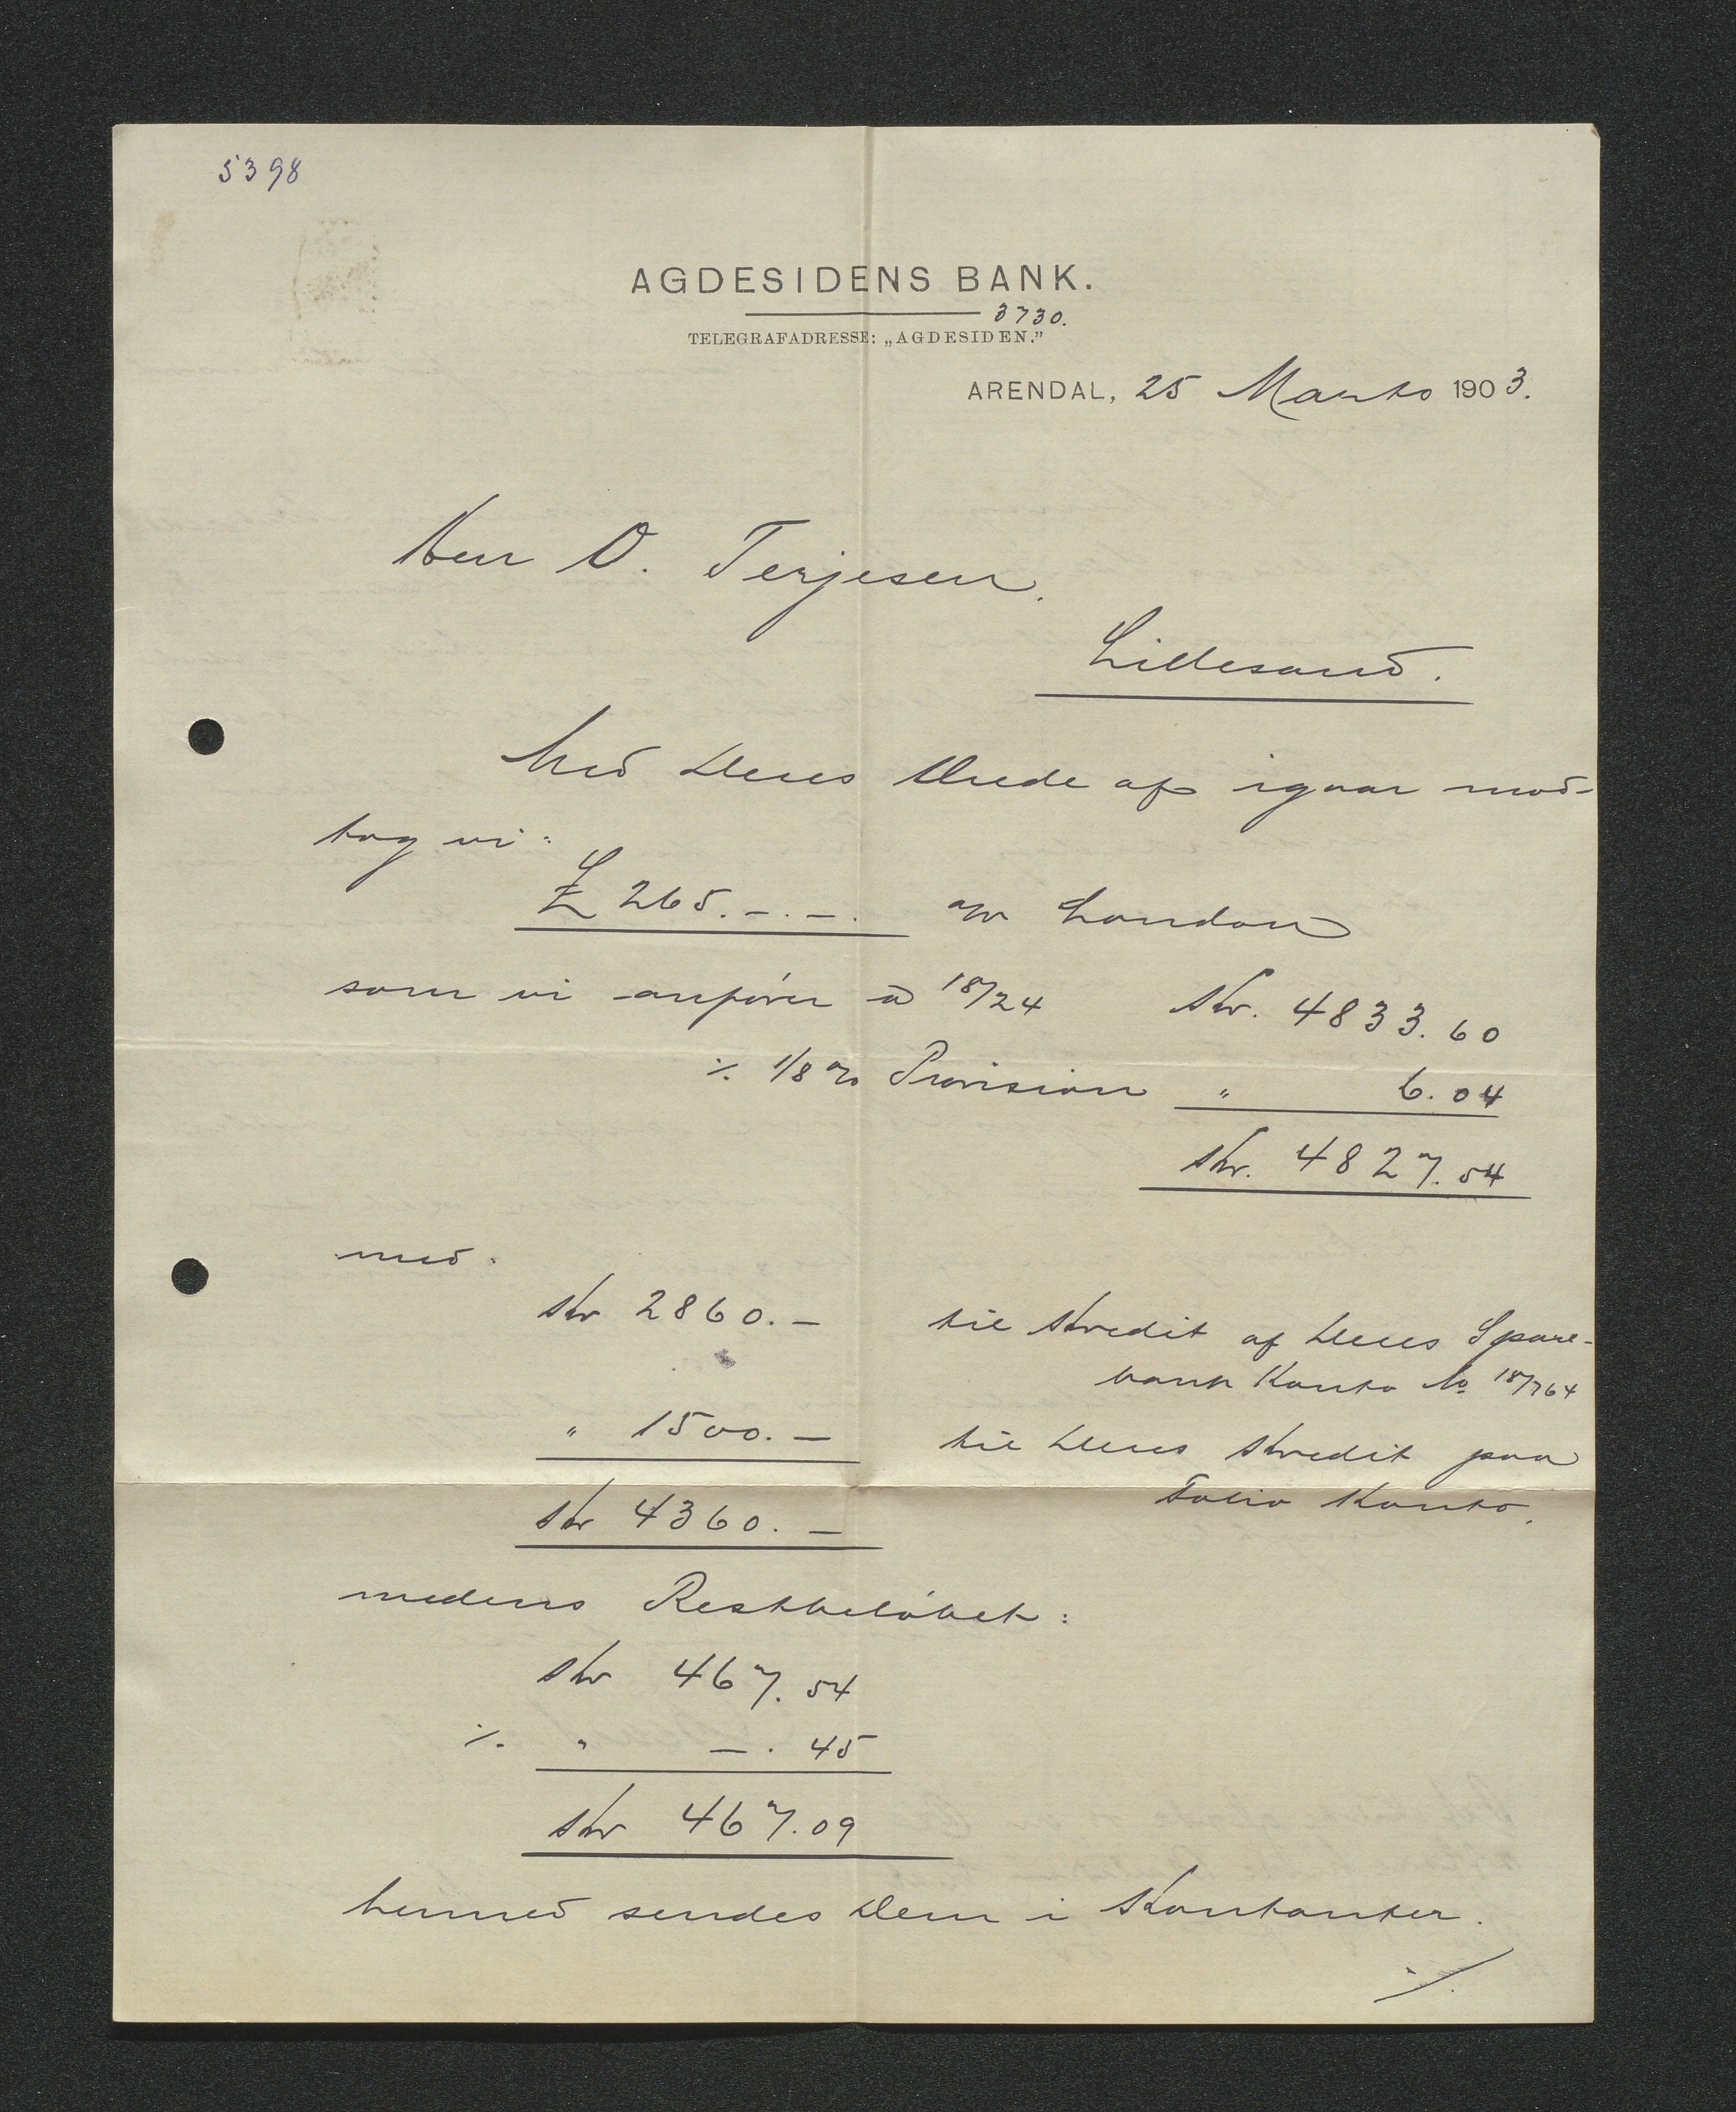 5398
AGDESIDENS BANK.
3730.
TELEGRAFADRESSE: „AGDESIDEN.”
ARENDAL, 25 Marts 1903.
Herr O. Terjesen.
Lillesand.
Med Deres Ærede af igaar mod-
tog vi:
£ 265.-.-. a/ London
som vi anfører à 18/24 Kr. 4833.60
÷ 1/8 % Provision " 6.04
Kr. 4827.54
med:
Kr 2860.- til Kredit af Deres Spare-
bank Konto No 18/764
" 1500.- til Deres Kredit paa
Folio Konto.
Kr 4360.-
medens Restbeløbet:
Kr 467.54
÷ " -.45
Kr 467.09
hermed sendes Dem i Kontanter.
./.